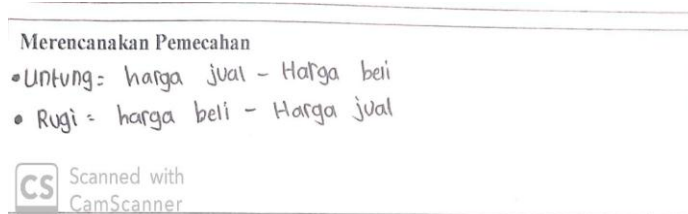 Merencanakan Pemecahan
• Untung = harga jual - Harga beli
• Rugi = harga beli - Harga jual
CS Scanned with
CamScanner